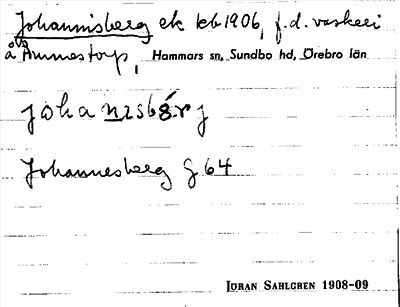 Johannisberg ek keb 1906, f.d. vaskeri
å Åmmestorp, Hammars sn, Sundbo hd, Örebro län
johanisbärj
Johannesberg G 64
JÖRAN SAHLGREN 1908-09